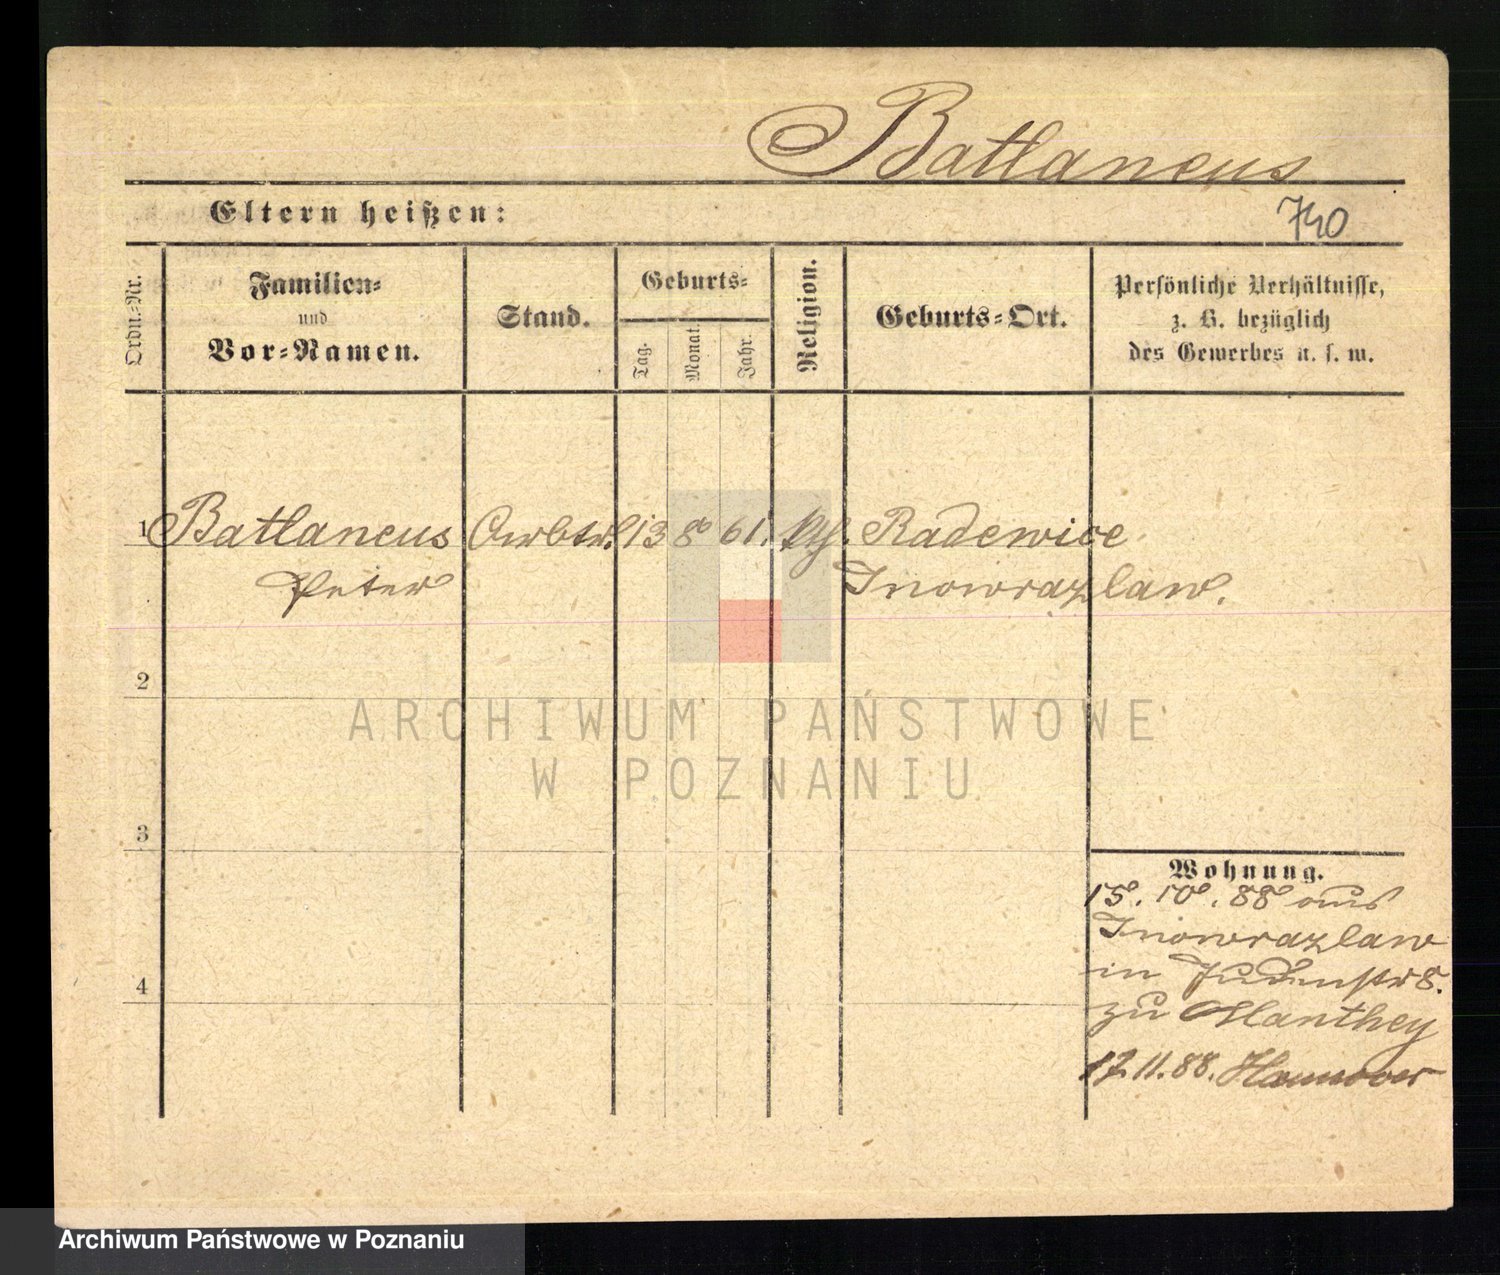 Batlaneus
Eltern heißen:
740
Ordn.-Nr.
Familien-
und
Vor-Namen.
Stand.
Geburts-
Tag.
Monat.
Jahr.
Religion.
Geburts-Ort.
Persönliche Verhältnisse,
z. B. bezüglich
des Gewerbes u. s. w.
1 Batlaneus Arbtr. 13 8 61. kth. Radewice
Peter Inowrazlaw.
2
3
4
Wohnung.
15. 10. 88 aus
Inowrazlaw
in Judenstr 8.
zu Manthey
17. 11. 88. Hannover
ARCHIWUM PAŃSTWOWE
W POZNANIU
Archiwum Państwowe w Poznaniu